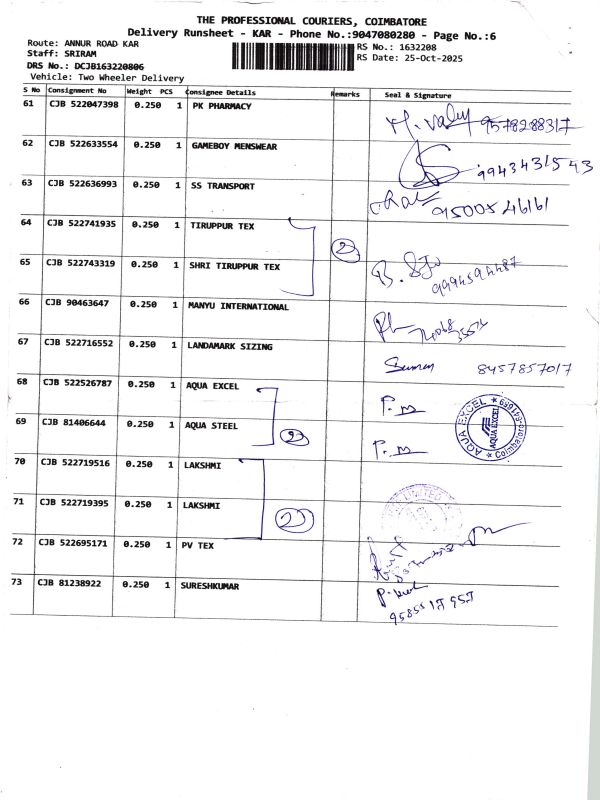 THE PROFESSIONAL COURIERS, COIMBATORE
Delivery Runsheet - KAR - Phone No.:9047080280 - Page No.:6
Route: ANNUR ROAD KAR
RS No.: 1632208
Staff: SRIRAM
RS Date: 25-Oct-2025
DRS No.: DCJB163220806
Vehicle: Two Wheeler Delivery
S No Consignment No Weight PCS Consignee Details Remarks Seal & Signature
61 CJB 522047398 0.250 1 PK PHARMACY
9578288317
62 CJB 522633554 0.250 1 GAMEBOY MENSWEAR
9943431543
63 CJB 522636993 0.250 1 SS TRANSPORT
9500546161
64 CJB 522741935 0.250 1 TIRUPPUR TEX
2
65 CJB 522743319 0.250 1 SHRI TIRUPPUR TEX
66 CJB 90463647 0.250 1 MANYU INTERNATIONAL
67 CJB 522716552 0.250 1 LANDAMARK SIZING
Suman 8457857017
68 CJB 522526787 0.250 1 AQUA EXCEL
P. m
AQUA EXCEL
AQUA EXCEL
69 CJB 81406644 0.250 1 AQUA STEEL
2
P. m
Coimbatore
70 CJB 522719516 0.250 1 LAKSHMI
71 CJB 522719395 0.250 1 LAKSHMI
2
LIMITED
72 CJB 522695171 0.250 1 PV TEX
73 CJB 81238922 0.250 1 SURESHKUMAR